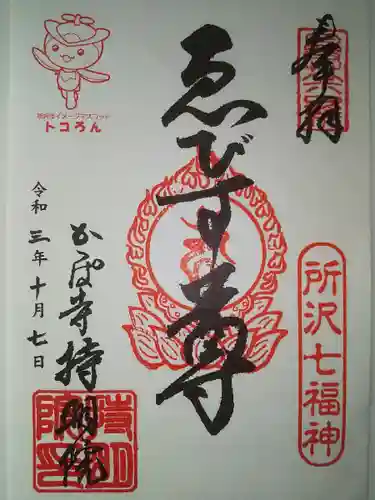 奉拝
所沢七福神
ゑびす尊
所沢市イメージマスコット
トコろん
令和三年十月七日
かっぱ寺持明院
持明院